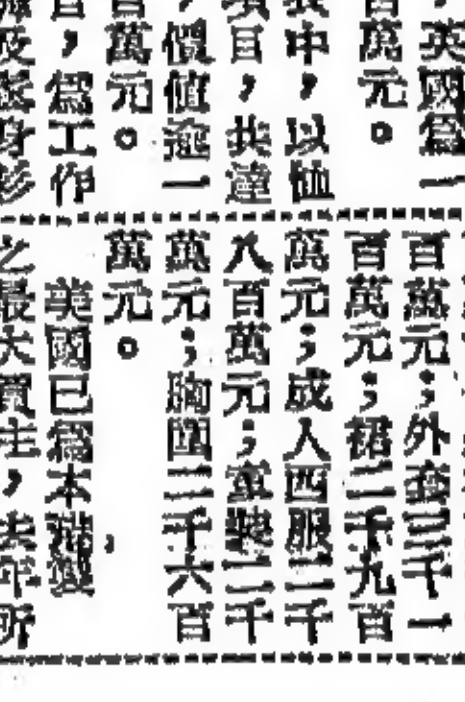 ，英國爲一
百萬元。
表中，以恤
項目，共達
，價值逾一
百萬元。
，爲工作
及
百萬元；外套三千一
百萬元；裙二千九百
萬元；成人西服二千
八百萬元；童裝二千
萬元；胸圍二千六百
萬元。
美國已爲本港製
之最大買主，去年所